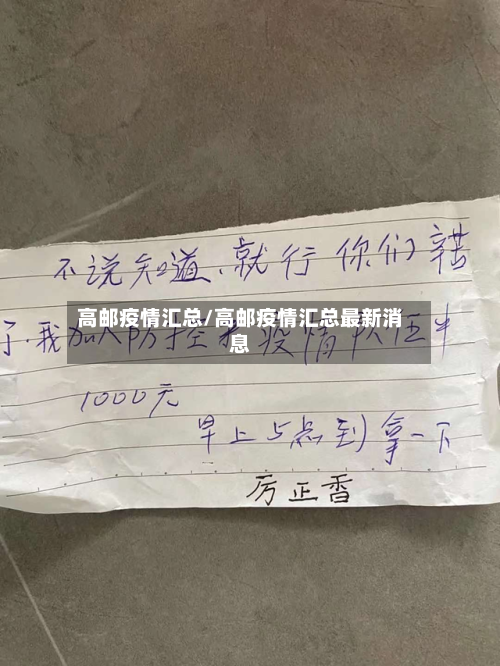 不说知道、就行 你们辛苦
了.我加入防控
高邮疫情汇总/高邮疫情汇总最新消
息
疫情
1000元
早上5点到拿一下
厉正香